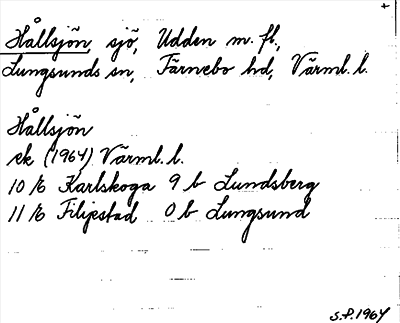 +
Hållsjön, sjö, Udden m. fl.,
Lungsunds sn, Färnebo hd, Värml. l.
Hållsjön
ek (1964) Värml. l.
10/6 Karlskoga 9 b Lundsberg
11/6 Filipstad 0 b Lungsund
S.P. 1964